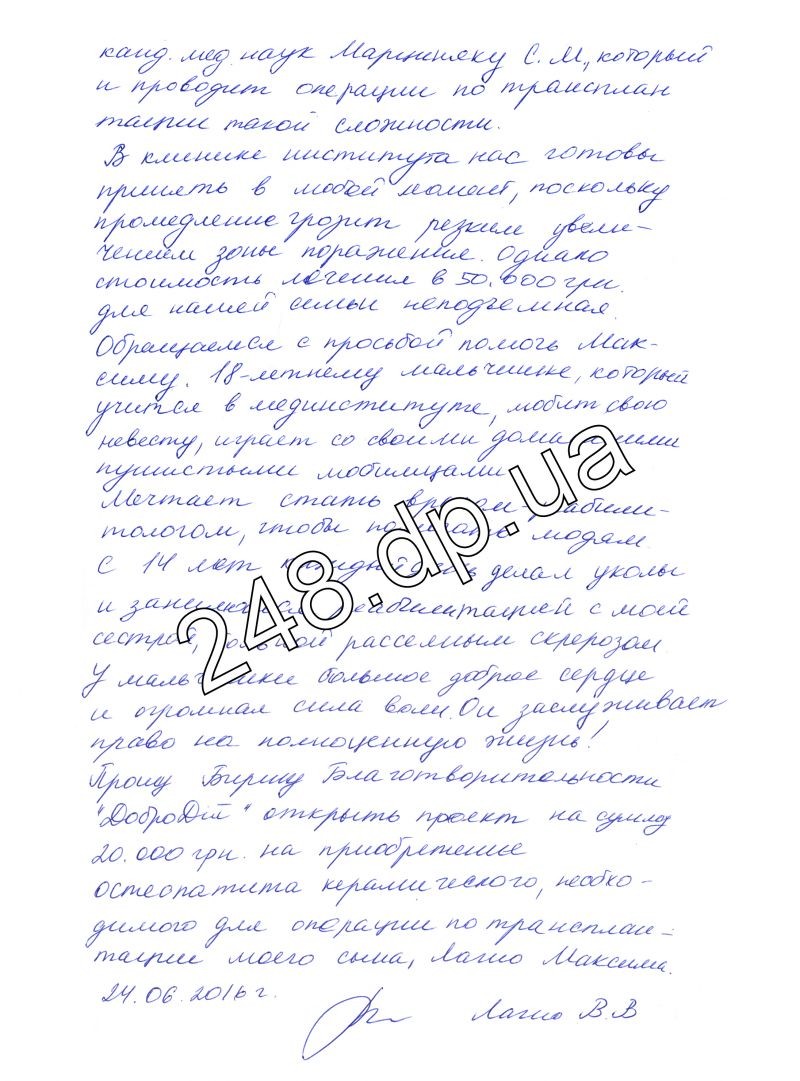 канд. мед. наук Мартыняку С. М., который
и проводит операции по трансплан
тации такой сложности.
В клинике института нас готовы
принять в любой момент, поскольку
промедление грозит резким увели-
чением зоны поражения. Однако
стоимость лечения в 50.000 грн.
для нашей семьи неподъемная.
Обращаемся с просьбой помочь Мак-
симу, 18-летнему мальчишке, который
учится в мединституте, любит свою
невесту, играет со своими домашними
пушистыми любимцами
Мечтает стать врачом-реабили-
тологом, чтобы помогать людям.
С 14 лет каждый день делал уколы
и занимался реабилитацией с моей
сестрой, больной рассеяным склерозом
У мальчишки большое доброе сердце
и огромная сила воли. Он заслуживает
право на полноценную жизнь!
Прошу Биржу Благотворительности
"ДоброДій" открыть проект на сумму
20.000 грн. на приобретение
остеопатита керамического, необхо-
димого для операции по трансплан-
тации моего сына, Максима.
24.06.2016 г.
В.В
248.dp.ua